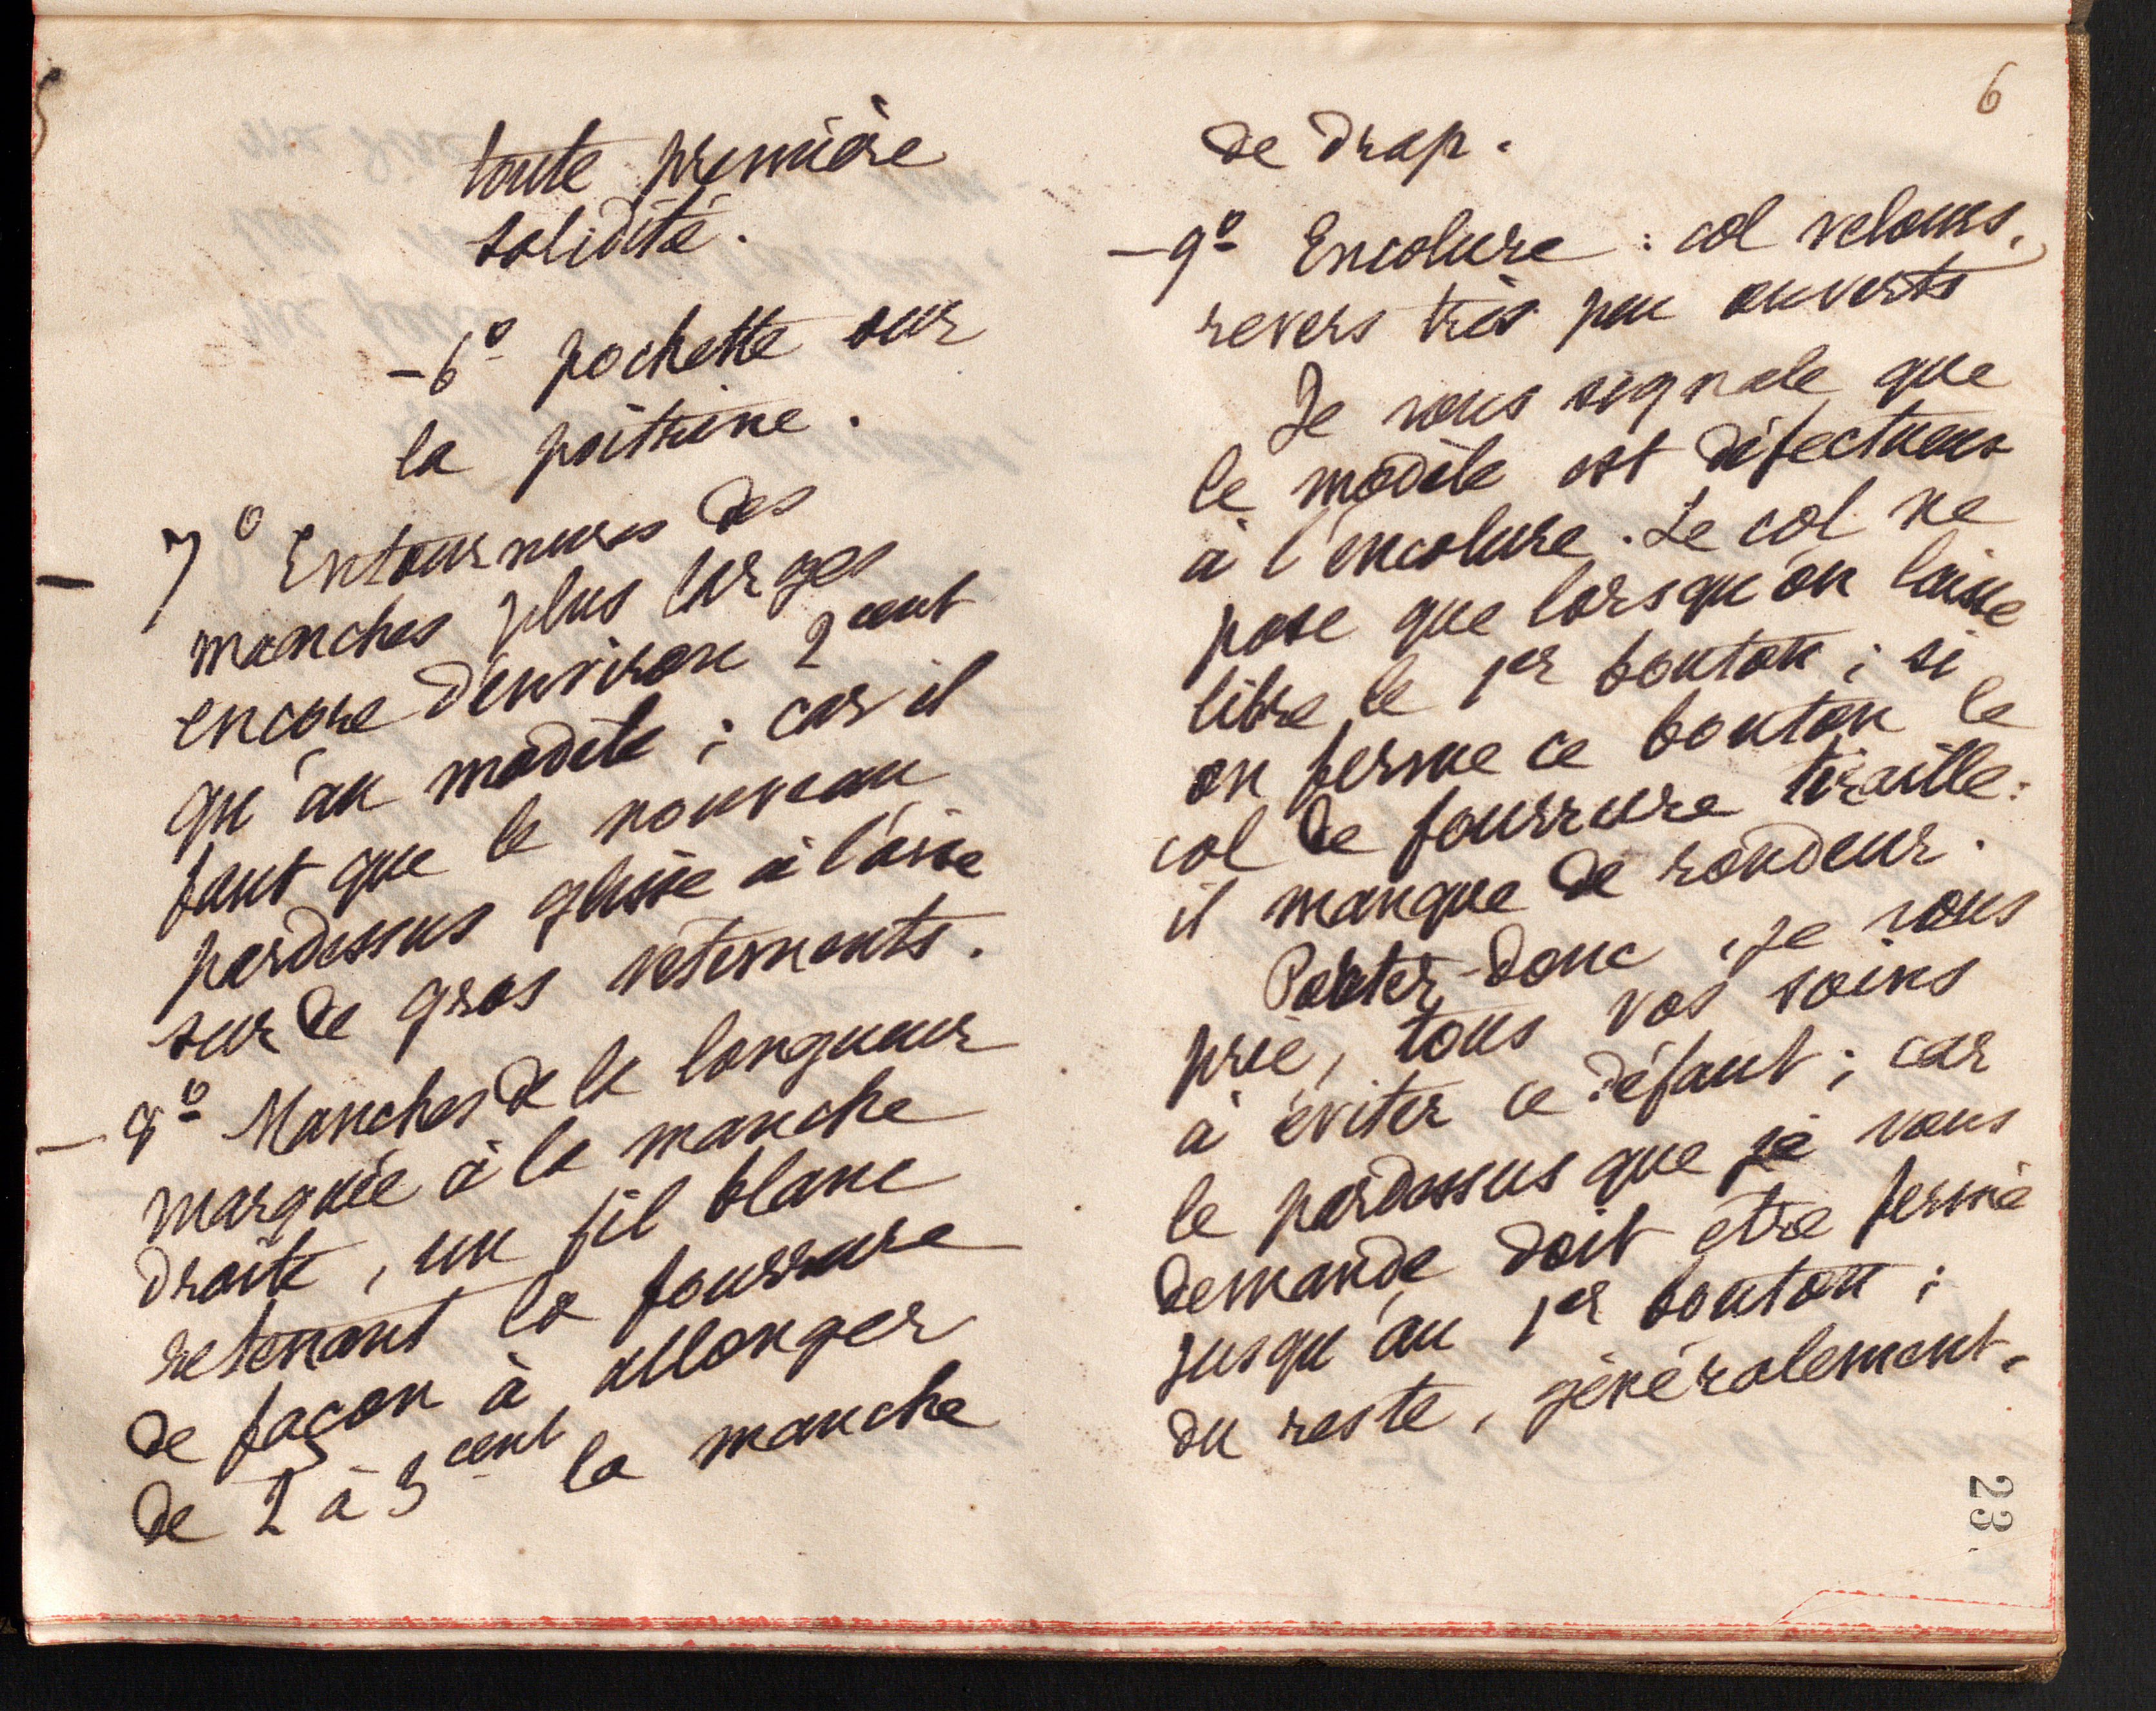 toute première
solidité.
- 6º pochette sur
la poitrine.
- 7º Entournures des
manches plus larges
encore d'environ 2 cent
qu'au modèle ; car il
faut que le nouveau
pardessus glisse à l'aise
sur de gros vêtements.
- 8º Manches de la longueur
marquée à la manche
droite, un fil blanc
retenant la fourrure
de façon à allonger
de 2 à 3 cent la manche
6
de drap.
- 9º Encolure : col velours,
revers très peu ouverts
Je vous signale que
le modèle est défectueux
à l'encolure. Le col ne
pose que lorsqu'on laisse
libre le 1er bouton ; si
on ferme ce bouton le
col de fourrure tiraille :
il manque de rondeur.
Porter-donc, je vous
prie, tous vos soins
à éviter ce défaut ; car
le pardessus que je vous
demande doit être fermé
jusqu'au 1er bouton ;
du reste, généralement.
23